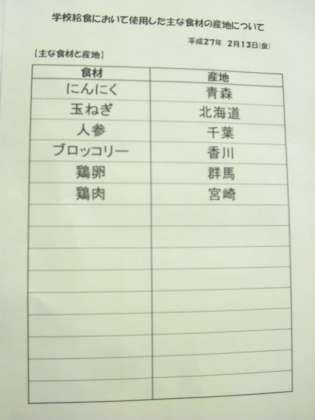 学校給食において使用した主な食材の産地について
平成27年 2月13日(金)
【主な食材と産地】
食材 産地
にんにく 青森
玉ねぎ 北海道
人参 千葉
ブロッコリー 香川
鶏卵 群馬
鶏肉 宮崎